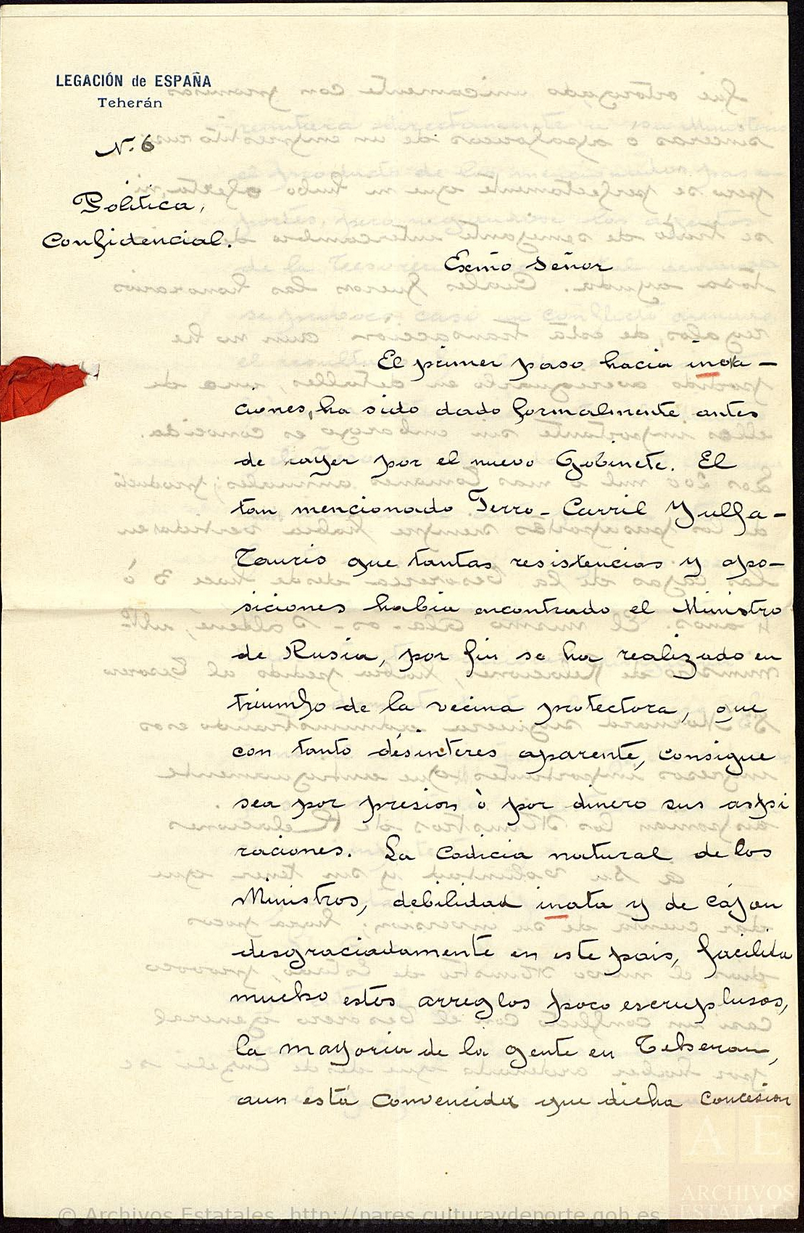 LEGACIÓN de ESPAÑA
Teherán
N. 6
Politica,
Confidencial.
Exmo Señor
El primer paso hacia inova-
ciones, ha sido dado formalmente antes
de ayer por el nuevo Gobinete. El
tan mencionado Ferro-Carril Yulfa-
Tauris que tantas resistencias y opo-
siciones habia encontrado el Ministro
de Rusia, por fin se ha realizado en
triumfo de la vecina protectora, que
con tanto désinteres aparente, consigue
sea por presion ò por dinero sus aspi
raciones. La codicia natural de los
Ministros, debilidad inata y de cájon
desgraciadamente en este pais, facilita
mucho estos arreglos poco escruplusos,
la mayoria de la gente en Teheran,
aun está convencida que dicha concesion
© Archivos Estatales, http://pares.culturaydeporte.gob.es
AE
ARCHIVOS
ESTATALES